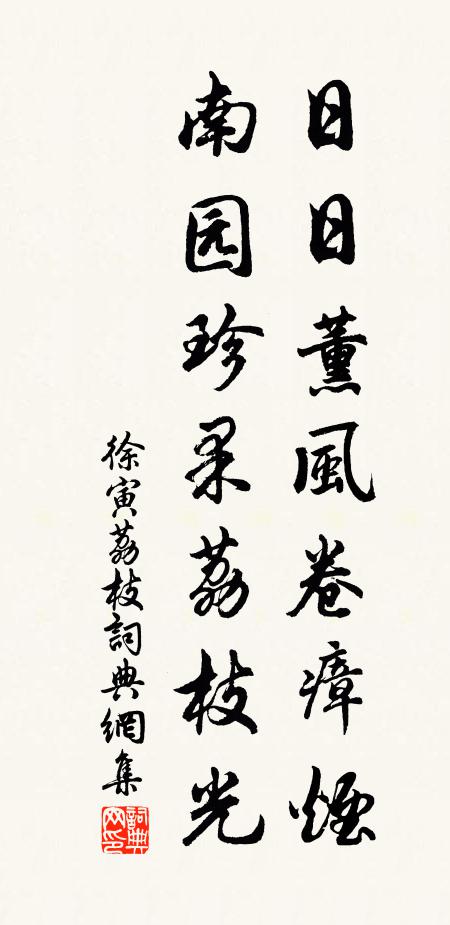 日日薰風卷瘴煙
南园珍果荔枝光
徐寅荔枝詞典網集
詞典网印